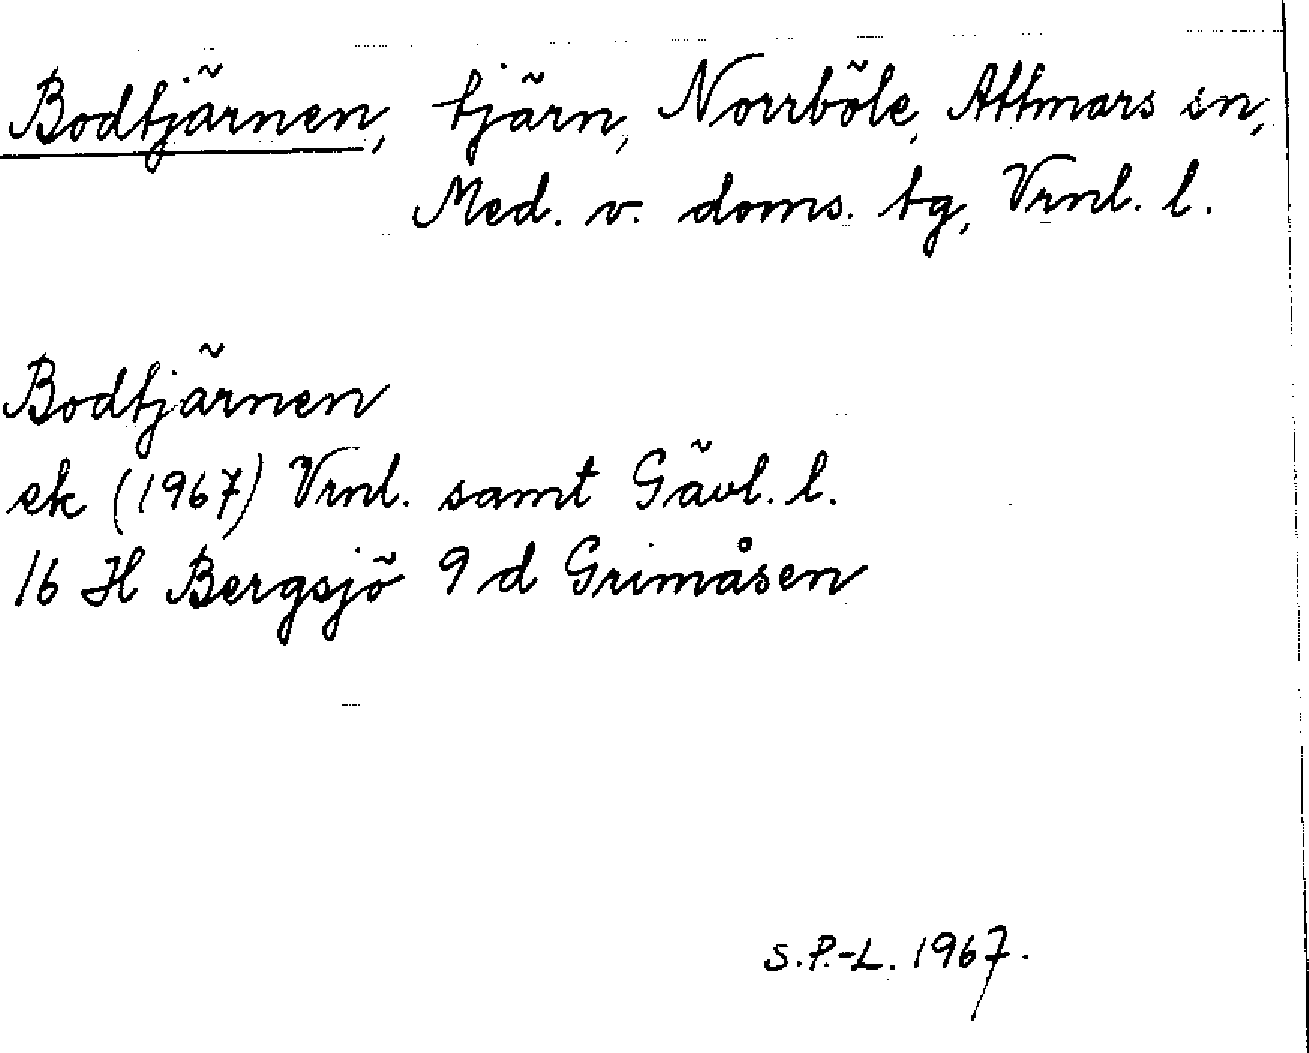 Bodtjärnen, tjärn, Norrböle, Attmars sn,
Med. v. doms. tg, Vrnl. l.
Bodtjärnen
ek (1967) Vrnl. samt Gävl. l.
16 H Bergsjö 9 d Grimåsen
S.P.-L. 1967.